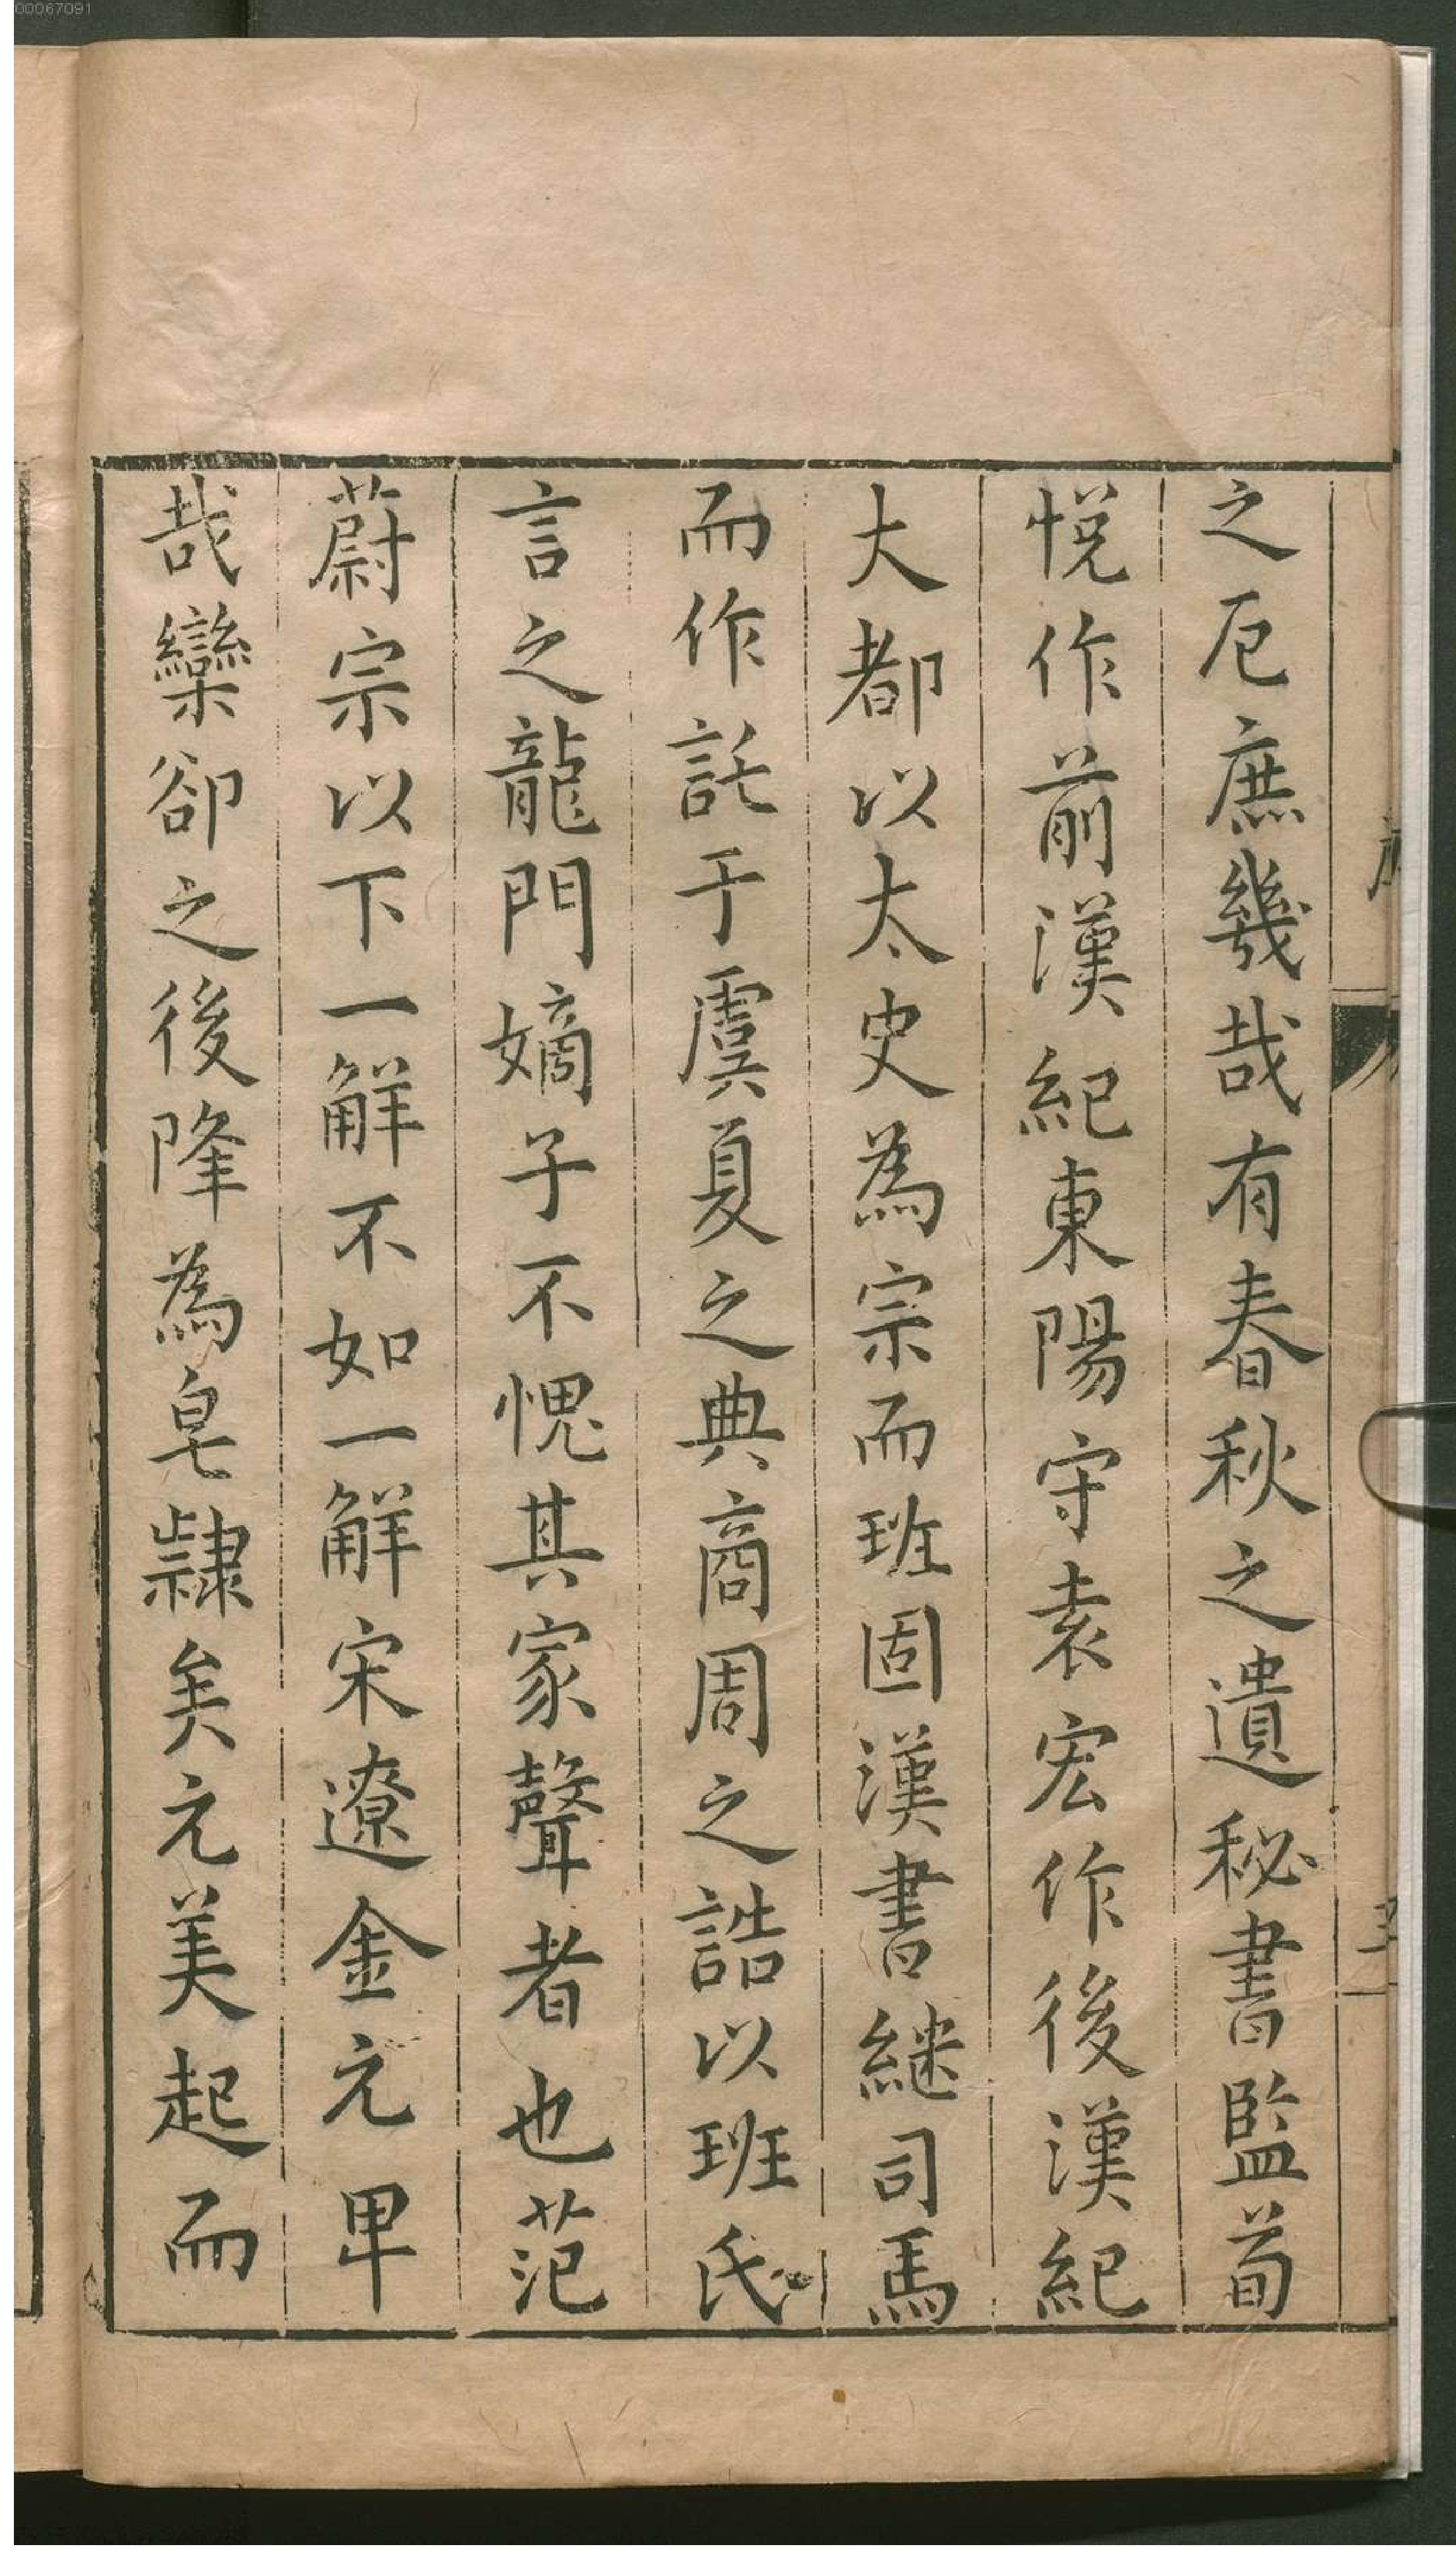 00067091
之厄庶幾哉有春秋之遺秘書監荀
悅作前漢紀東陽守袁宏作後漢紀
大都以太史為宗而班固漢書継司馬
而作託于虞夏之典商周之誥以班氏
言之龍門嫡子不愧其家聲者也范
蔚宗以下一觧不如一觧宋遼金元卑
哉欒郤之後降為皂隸矣元美起而